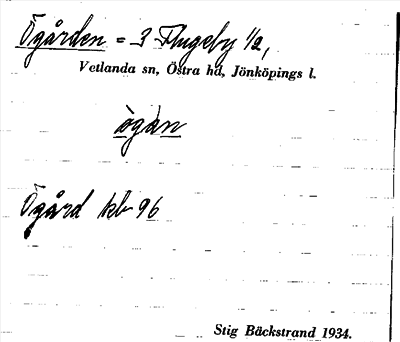 Ögården = 3 Flugeby 1/2,
Vetlanda sn, Östra hd, Jönköpings l.
ògàn
Ögård kb 96
Stig Bäckstrand 1934.